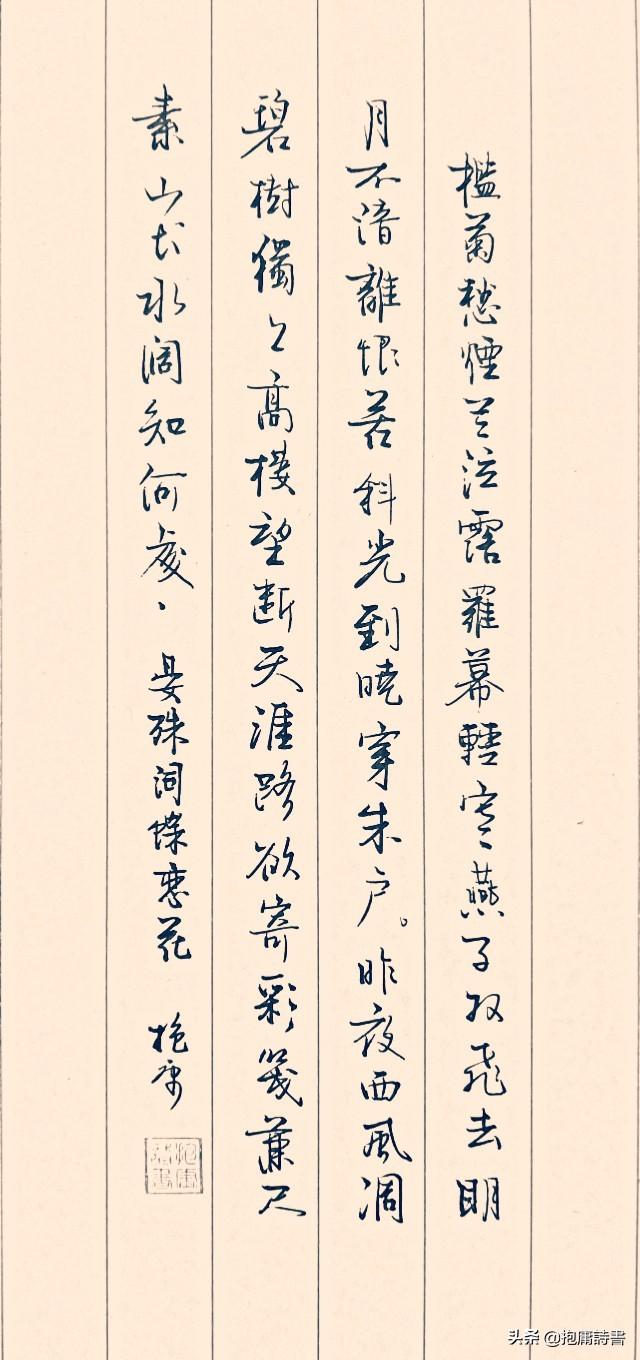 檻菊愁煙兰泣露羅幕輕寒燕子双飛去明
月不谙離恨苦斜光到曉穿朱户。昨夜西風凋
碧樹獨上高樓望断天涯路欲寄彩箋兼尺
素山长水阔知何處、晏殊词蝶恋花 抱庸
抱庸詩書
头条 @抱庸詩書